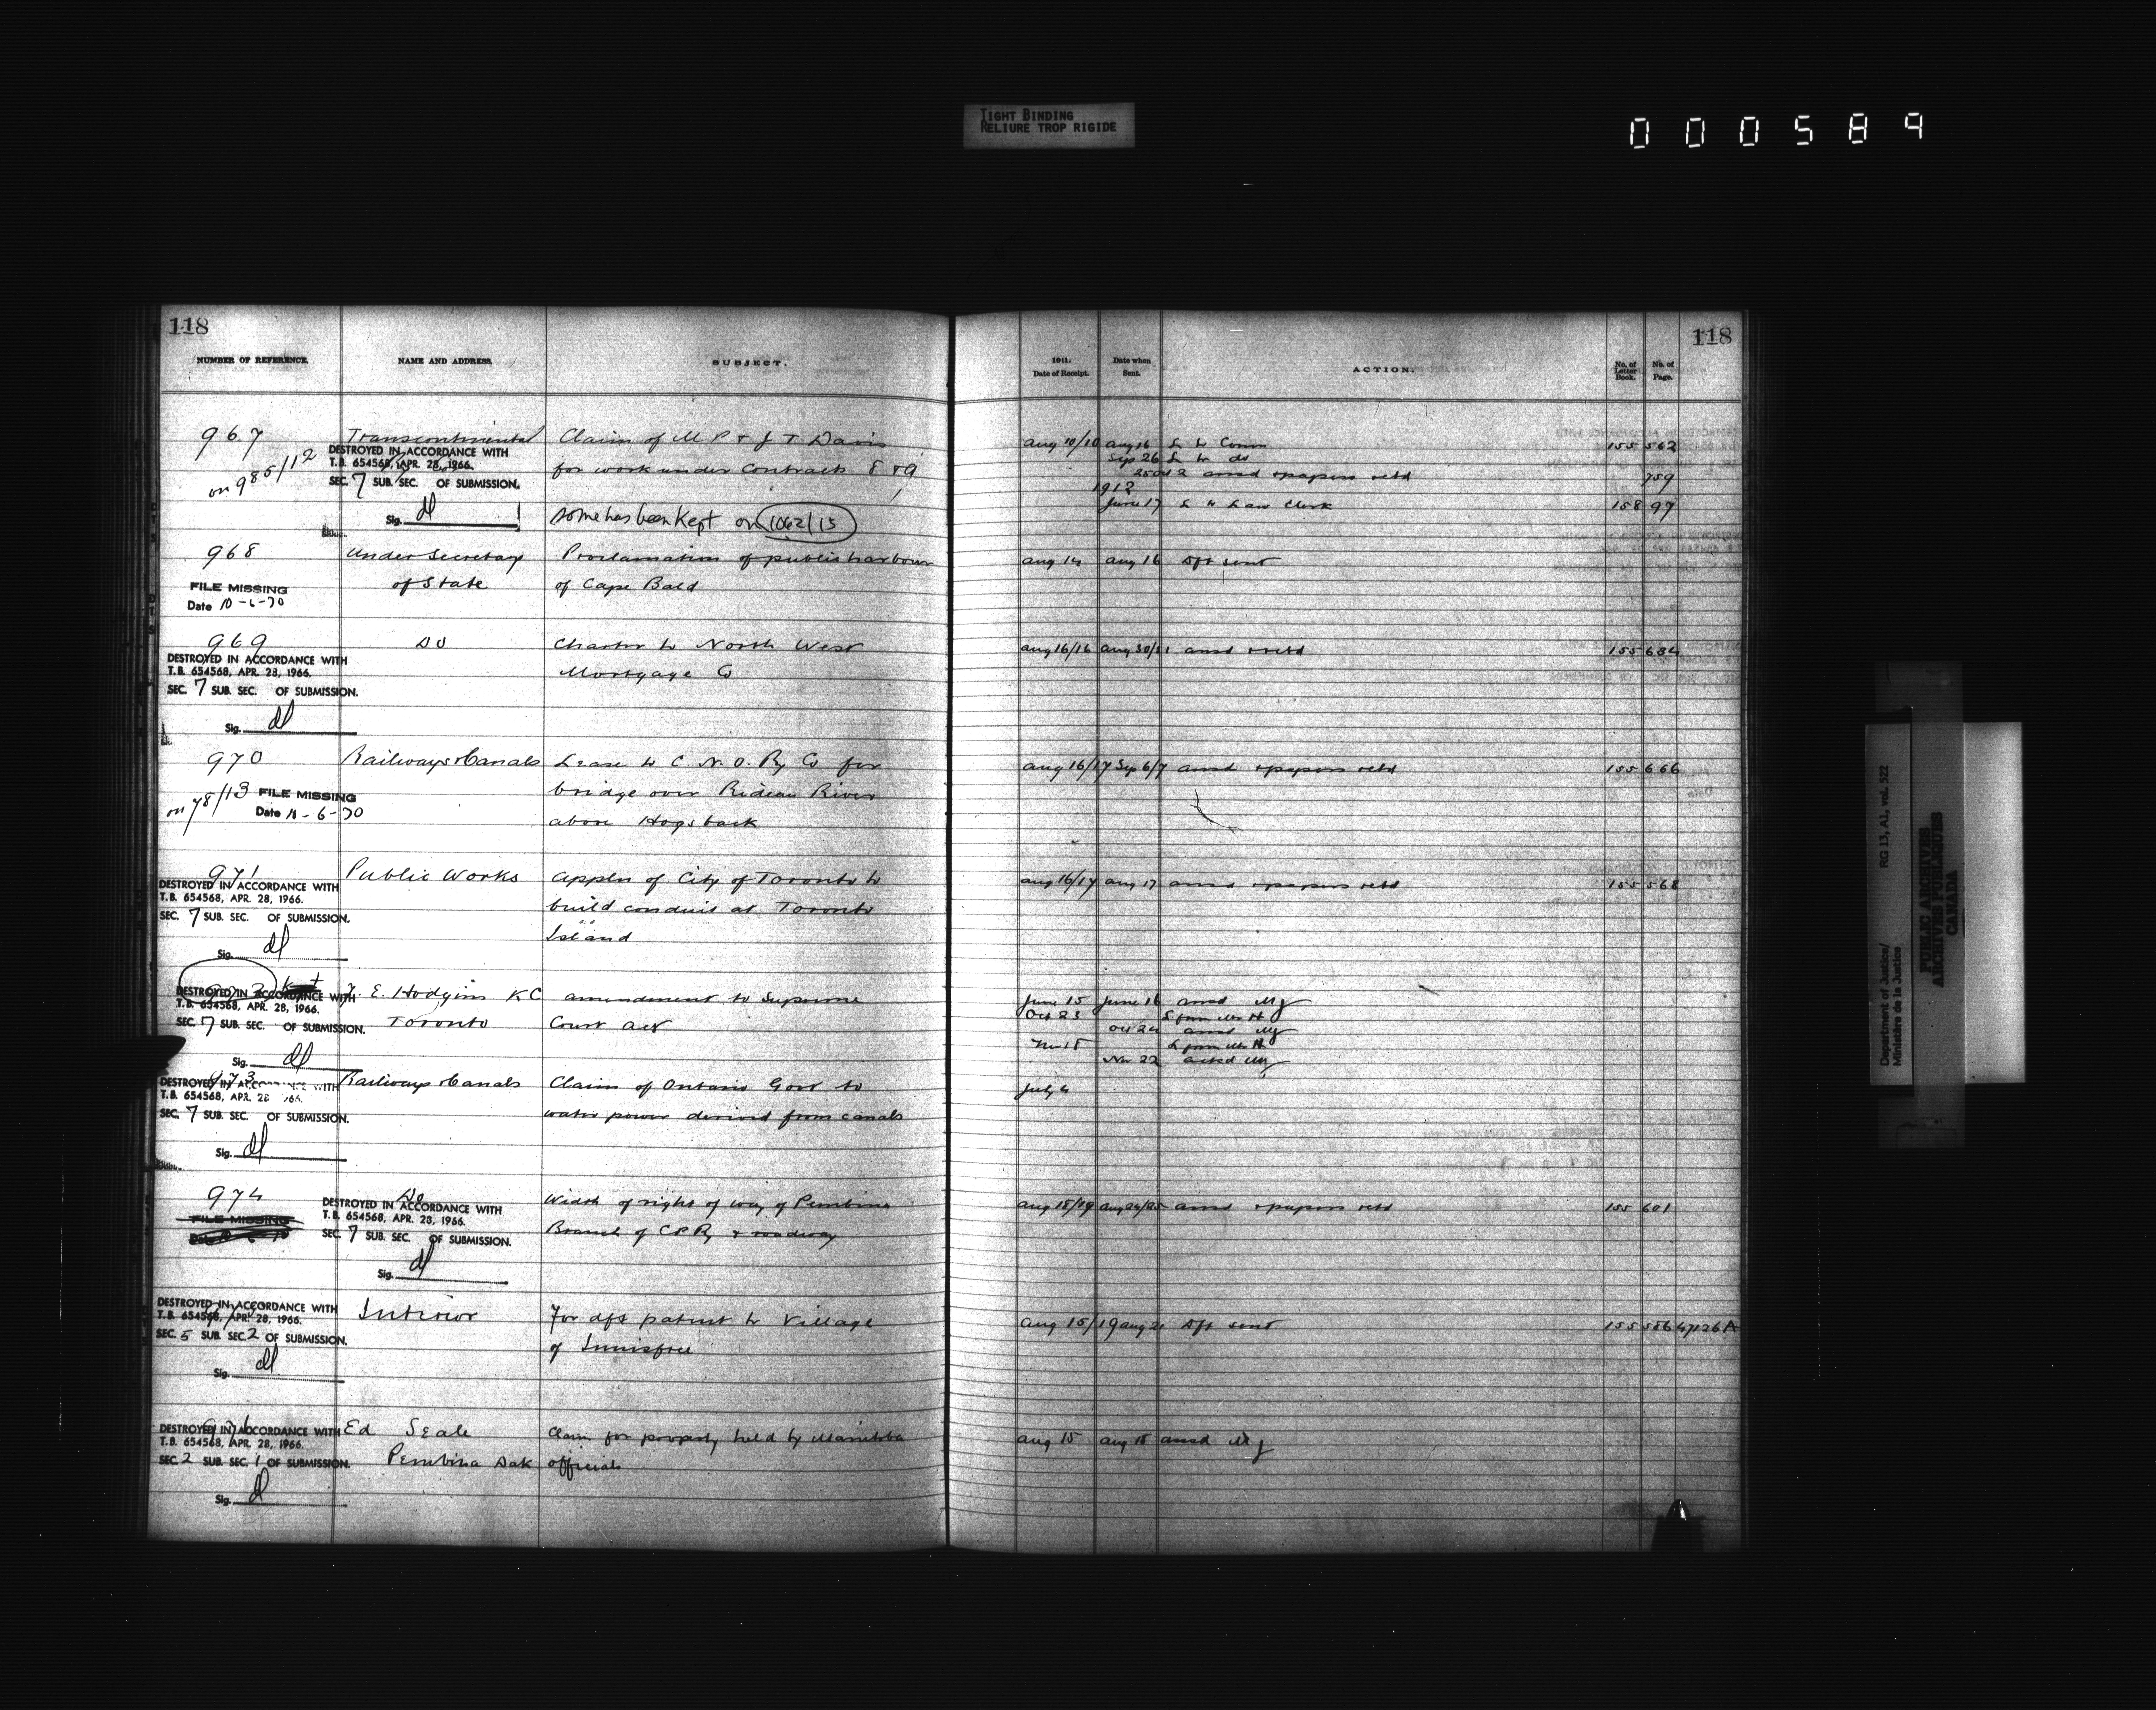 TIGHT BINDING
RELIURE TROP RIGIDE
000589
118
NUMBER OF REFERENCE.
NAME AND ADDRESS.
SUBJECT.
967
on 985/12
Transcontinental
DESTROYED IN ACCORDANCE WITH
T.B. 654568, APR. 28, 1966.
SEC. 7 SUB. SEC. OF SUBMISSION.
Sig. dl
Claim of M P & J T Davis
for work under Contracts 8 & 9
some has been Kept on 1062/15
968
FILE MISSING
Date 10-6-70
Under Secretary
of State
Proclamation of public harbour
of Cape Bald
969
DESTROYED IN ACCORDANCE WITH
T.B. 654568, APR. 28, 1966.
SEC. 7 SUB. SEC. OF SUBMISSION.
Sig. dl
Do
Charter to North West
Mortgage Co
970
on 78/13 FILE MISSING
Date 11-6-70
Railways & Canals
Lease to C. N. O. Ry Co for
bridge over Rideau River
above Hogsback
971
DESTROYED IN ACCORDANCE WITH
T.B. 654568, APR. 28, 1966.
SEC. 7 SUB. SEC. OF SUBMISSION.
Sig. dl
Public Works
Appln of City of Toronto to
build conduit at Toronto
Island
DESTROYED IN ACCORDANCE WITH
T.B. 654568, APR. 28, 1966.
SEC. 7 SUB. SEC. OF SUBMISSION.
Sig. dl
E. Hodgins KC
Toronto
Amendment to Supreme
Court Act
973
DESTROYED IN ACCORDANCE WITH
T.B. 654568, APR. 28 1966.
SEC. 7 SUB. SEC. OF SUBMISSION.
Sig. dl
Railways & Canals
Claim of Ontario Govt to
water power derived from canals
974
FILE MISSING
Do
DESTROYED IN ACCORDANCE WITH
T.B. 654568, APR. 28, 1966.
SEC. 7 SUB. SEC. OF SUBMISSION.
Sig. dl
Width of right of way of Pembina
Branch of CPRy & roadway
DESTROYED IN ACCORDANCE WITH
T.B. 654568, APR. 28, 1966.
SEC. 5 SUB. SEC. 2 OF SUBMISSION.
Sig. dl
Interior
For dft patent to Village
of Innisfree
976
DESTROYED IN ACCORDANCE WITH
T.B. 654568, APR. 28, 1966.
SEC. 2 SUB. SEC. 1 OF SUBMISSION.
Sig. dl
Ed Seale
Pembina Dak
Claim for property held by Manitoba
officials
118
1911.
Date of Receipt.
Date when
Sent.
ACTION.
No. of
Letter
Book.
No. of
Page.
Aug 10/10 Aug 16 L to Comn 155 562
Sep 26 L to do
Oct 2 ansd & papers retd 759
1912
June 17 L to Law Clerk 158 97
Aug 14 Aug 16 Dft sent
Aug 16/16 Aug 30/31 ansd & retd 155 684
Aug 16/17 Sep 6/7 ansd & papers retd 155 666
Aug 16/17 Aug 17 ansd & papers retd 155 568
June 15 June 16 ansd
Oct 23 L from Mr H
Oct 24 ansd
Nov 18 L from Mr H
Nov 22 ackd
July 4
Aug 18/19 Aug 24/25 ansd & papers retd 155 601
Aug 15/19 Aug 21 Dft sent 155 586 47126A
Aug 15 Aug 18 ansd
Department of Justice/ RG 13, A1, vol. 522
Ministère de la Justice
PUBLIC ARCHIVES
ARCHIVES PUBLIQUES
CANADA